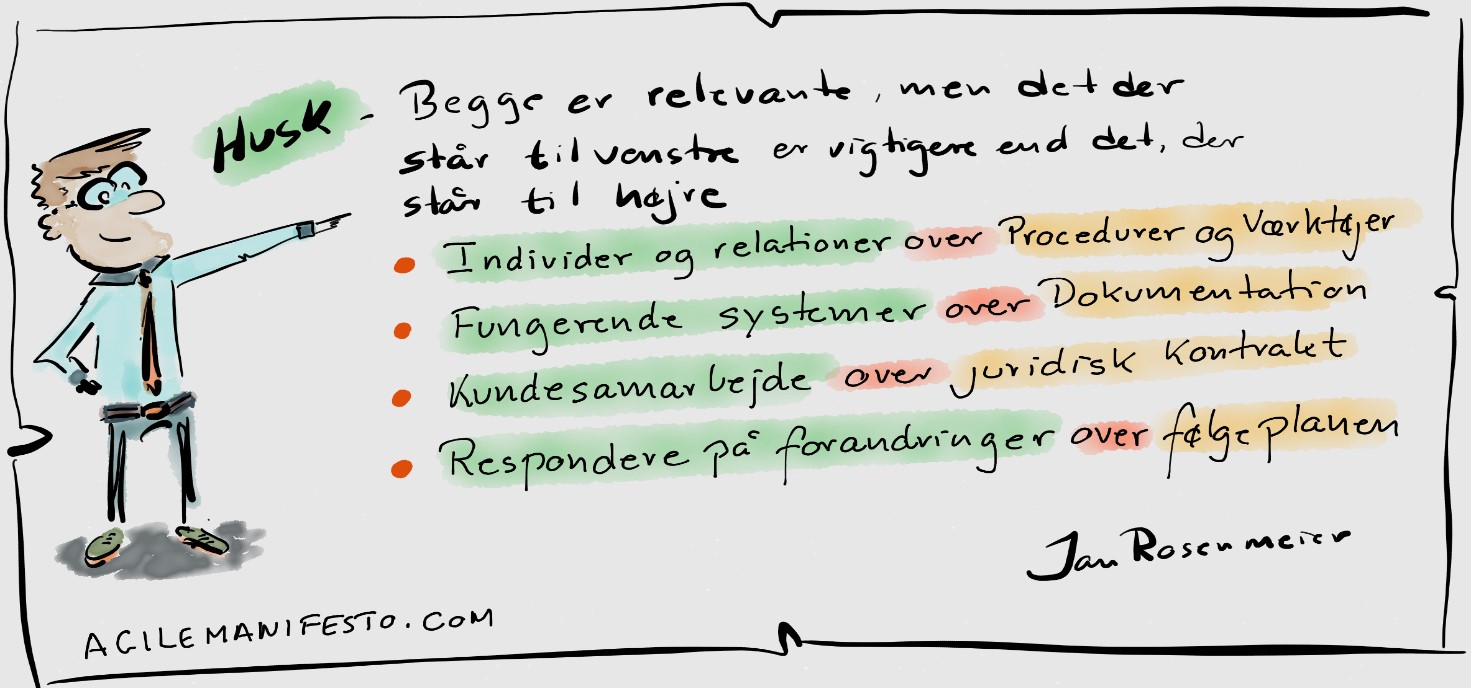 Husk - Begge er relevante, men det der
står til venstre er vigtigere end det, der
står til højre
Individer og relationer over Procedurer og Værktøjer
Fungerende systemer over Dokumentation
Kundesamarbejde over juridisk kontrakt
Respondere på forandringer over følge planen
Jan Rosenmeier
AGILEMANIFESTO.COM